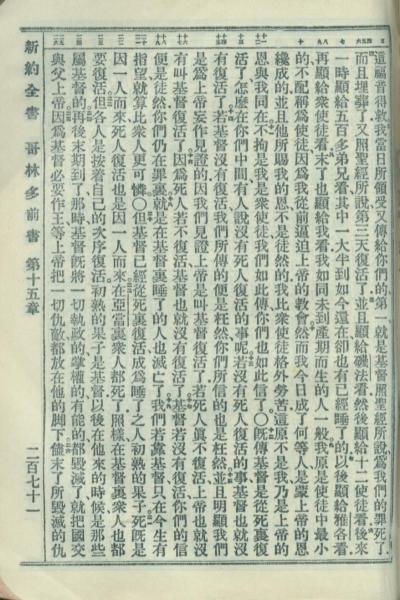 道福音得救我當日所領受又傳給你們的第一就是基督照聖經所說爲我們的罪死了
而且埋葬了又照聖經所說第三天復活了並且顯給磯法看然後顯給十二使徒看後來
一時顯給五百多弟兄看其中一大半到如今還在卻也有已經睡了的以後顯給雅各看
再顯給衆使徒看末了也顯給我看我如同未到產期而生的人一般我原是使徒中最小
的不配稱爲使徒因爲我從前逼迫上帝的敎會然而我今日成了何等人是蒙上帝的恩
纔成的並且他所賜我的恩不是徒然的我比衆使徒格外勞苦這原不是我乃是上帝的
恩與我同在不拘是我是衆使徒我們如此傳你們也如此信了〇旣傳基督是從死裏復
活了怎麼在你們中間有人說沒有死人復活的事呢若沒有死人復活的事基督也就沒
有復活了若基督沒有復活我們所傳的便是枉然你們所信的也是枉然並且明顯我們
是爲上帝妄作見證的因我們見證上帝是叫基督復活了若死人眞不復活上帝也就沒
有叫基督復活了因爲死人若不復活基督也就沒有復活了基督若沒有復活你們的信
便是徒然你們仍在罪裏就是在基督裏睡了的人也滅亡了我們若靠基督只在今生有
指望就算比衆人更可憐〇但基督已經從死裏復活成爲睡了之人初熟的果子死旣是
因一人而來死人復活也是因一人而來在亞當裏衆人都死了照樣在基督裏衆人也都
要復活但各人是按着自己的次序復活初熟的果子是基督以後在他來的時候是那些
屬基督的再後末期到了那時基督旣將一切執政的掌權的有能的都毀滅了就把國交
與父上帝因爲基督必要作王等上帝把一切仇敵都放在他的脚下儘末了所毀滅的仇
新約全書 哥林多前書 第十五章 二百七十一